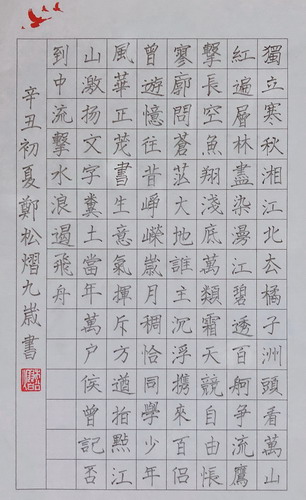 獨立寒秋湘江北去橘子洲頭看萬山
紅遍層林盡染漫江碧透百舸爭流鷹
擊長空魚翔淺底萬類霜天競自由悵
寥廓問蒼茫大地誰主沉浮携來百侶
曾遊憶往昔崢嶸歲月稠恰同學少年
風華正茂書生意氣揮斥方遒指點江
山激揚文字糞土當年萬户侯曾記否
到中流擊水浪遏飛舟
辛丑初夏鄭松熠九歲書